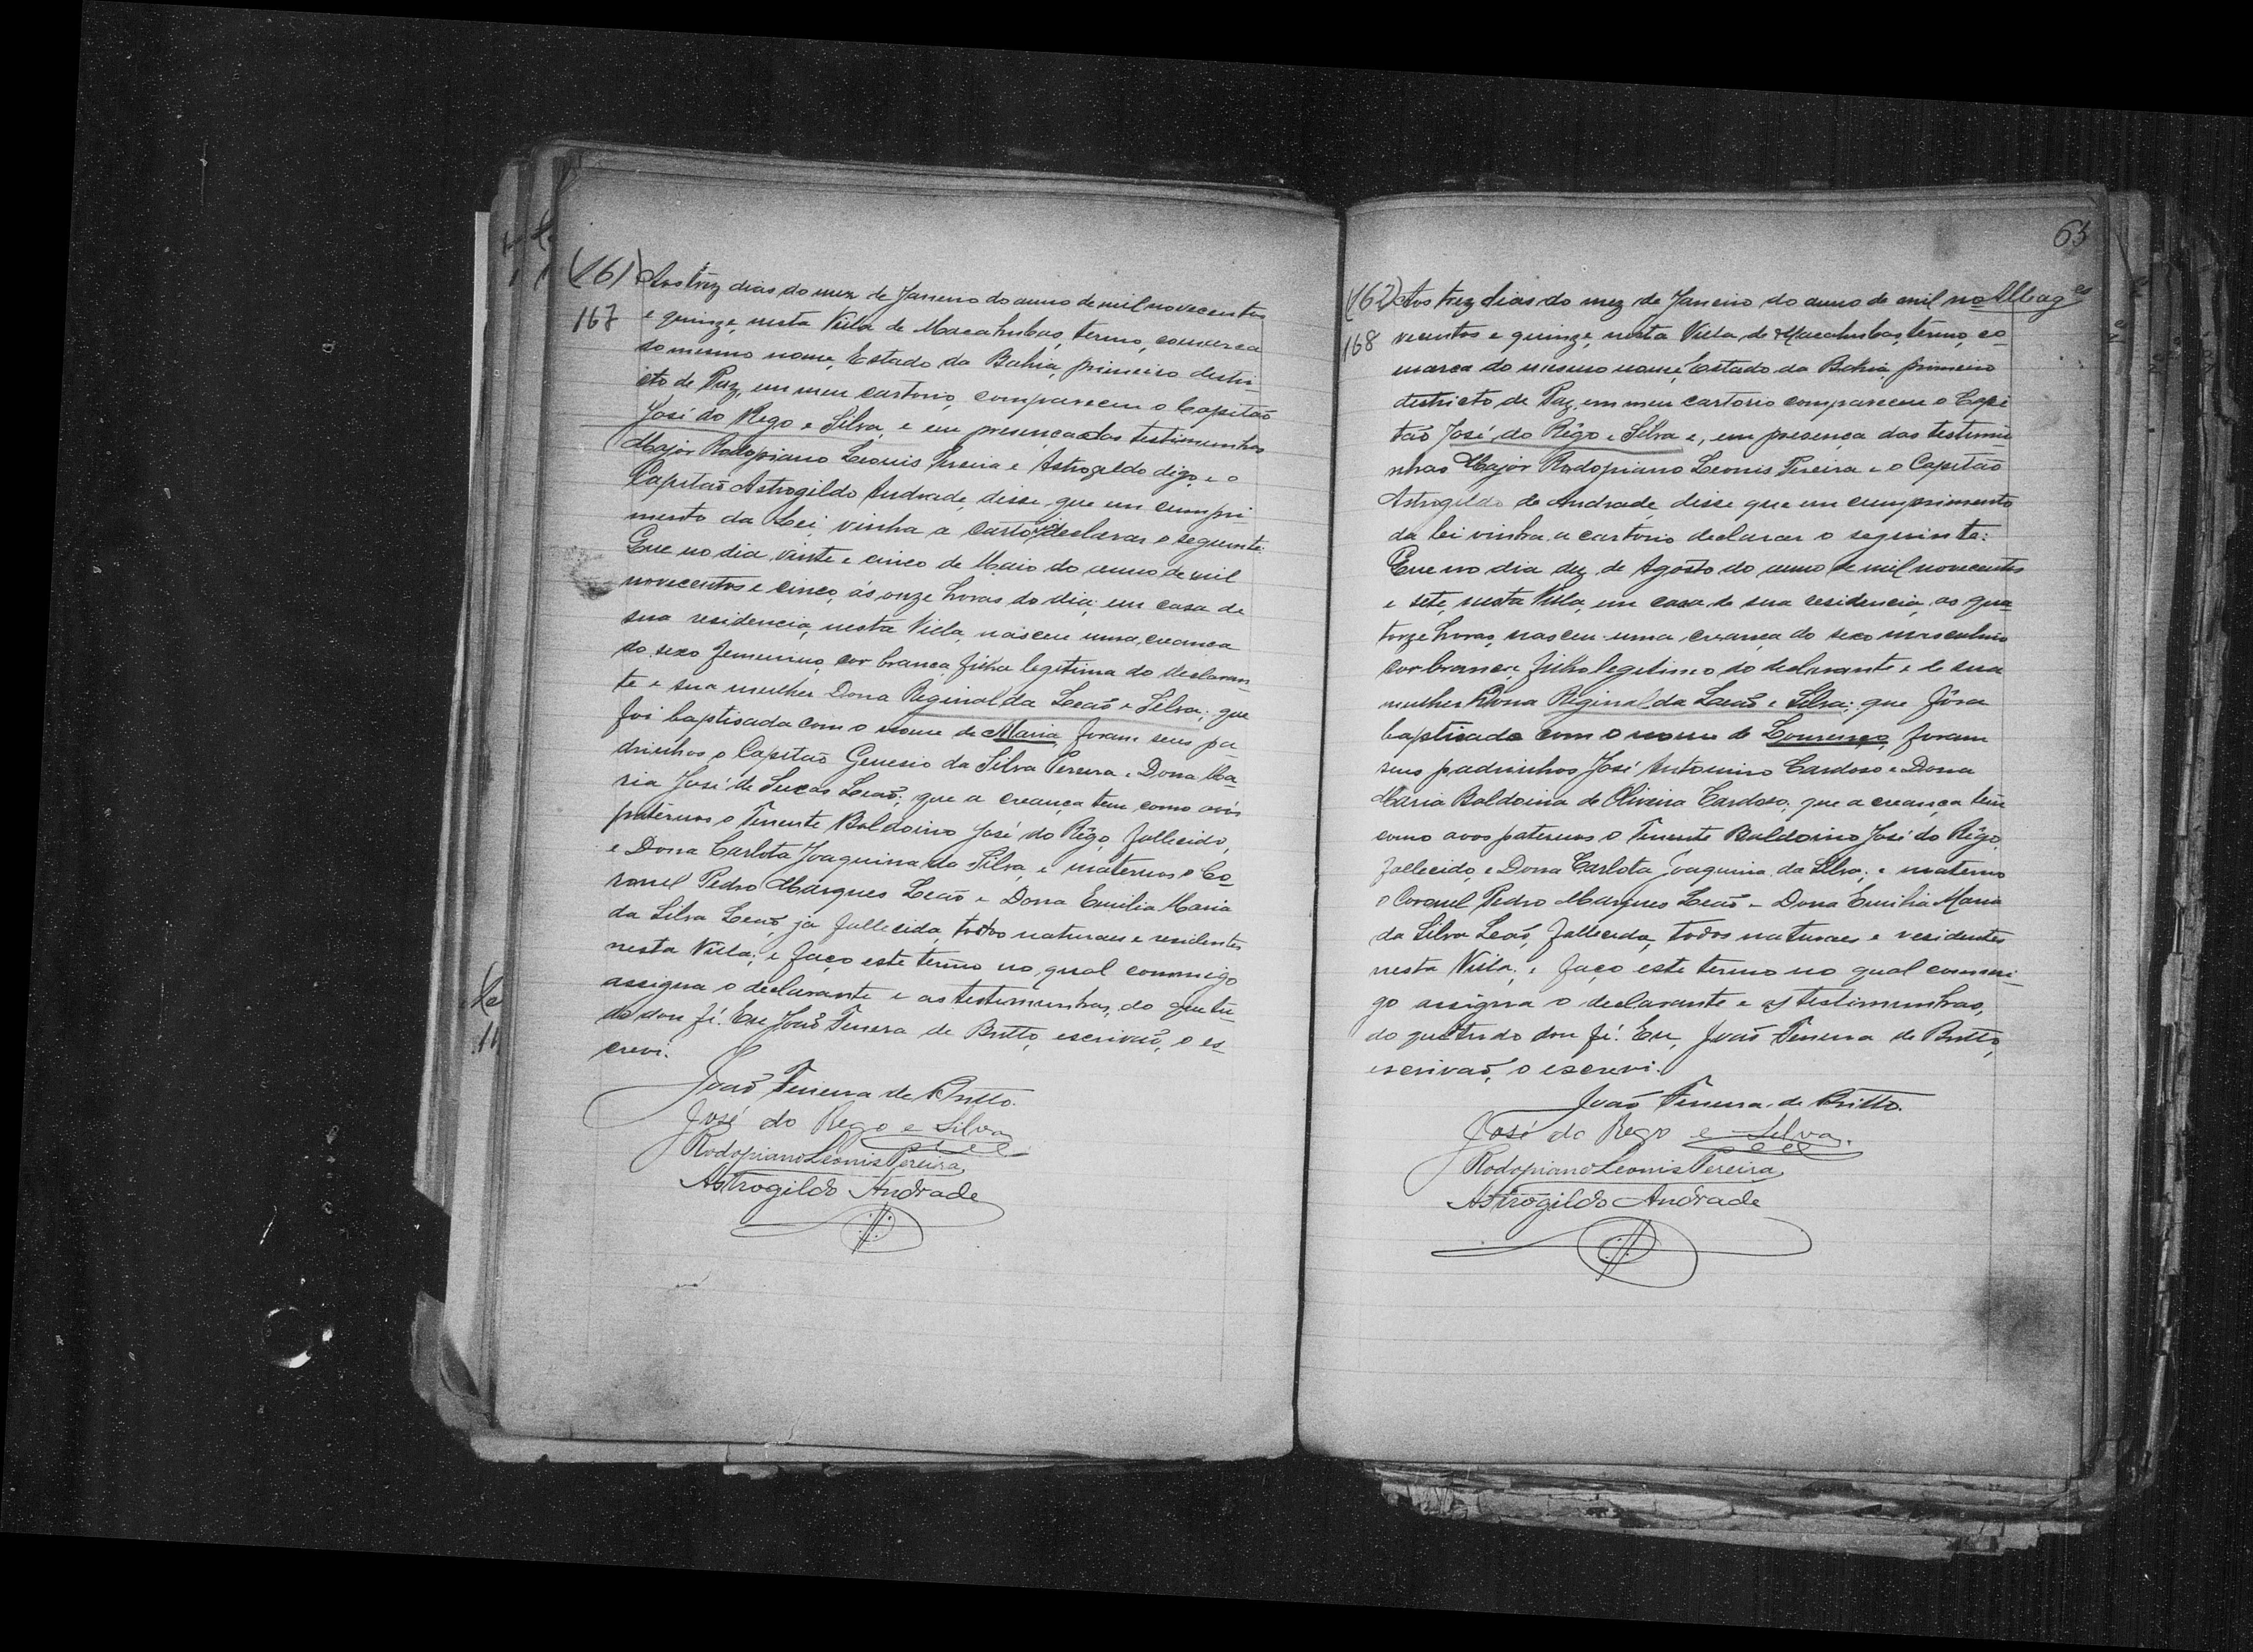 (161) Aos trez dias do mez de Janeiro do anno de mil novecentos
167 e quinze, nesta Villa de Macahubas, termo, comarca
do mesmo nome, Estado da Bahia, primeiro distri-
cto de Paz, em meu cartorio, compareceu o Capitão
José do Rego e Silva, e em presença das testimunhas
Major Rodopiano Leonis Pereira e Astrogeldo digo, e o
Capitão Astrogildo Andrade, disse que em cumpri
mento da Lei, vinha a cartorio declarar o seguinte:
Que no dia vinte e cinco de Maio do anno de mil
novecentos e cinco, ás onze horas do dia, em casa de
sua residencia, nesta Villa, nasceu uma creança
do sexo femenino, cor branca, filha legitima do declaran-
te e sua mulher Dona Reginalda Leão e Silva; que
foi baptisada com o nome de Maria, foram seus pa
drinhos o Capitão Genesio da Silva Pereira e Dona Ma-
ria José de Leão; que a creança tem como avós
paternos o Tenente Baldoino José do Rêgo, fallecido,
e Dona Carlota Joaquina da Silva, e maternos o Co-
ronel Pedro Marques Leão e Dona Emilia Maria
da Silva Leão, ja fallecida, todos naturaes e residentes
nesta Villa; e faço este termo no qual commigo
assigna o declarante e as testimunhas, do que tu-
do dou fé. Eu João Ferreira de Britto, escrivão, o es-
crevi.
João Ferreira de Britto.
José do Rego e Silva
Rodopiano Leonis Pereira,
Astrogildo Andrade
63
(162) Aos trez dias do mez de Janeiro do anno de mil no
168 vecentos e quinze, nesta Villa de Macahubas, termo, co-
marca do mesmo nome, Estado da Bahia, primeiro
districto de Paz, em meu cartorio compareceu o Capi
tão José do Rêgo e Silva e, em presença das testimu
nhas Major Rodopiano Leonis Pereira e o Capitão
Astrogildo de Andrade, disse que em cumprimento
da lei vinha a cartorio declarar o seguinte:
Que no dia dez de Agosto do anno de mil novecentos
e sete, nesta Villa, em casa de sua residencia, as qua-
torze horas, nasceu uma creança do sexo masculino
cor branca, filho legitimo do declarante e de sua
mulher Dona Reginalda Leão e Silva; que fôra
baptisado com o nome de Lourenço, foram
seus padrinhos José Antonino Cardoso e Dona
Maria Baldoina de Oliveira Cardoso; que a creança tem
como avos paternos o Tenente Baldoino José do Rêgo,
fallecido, e Dona Carlota Joaquina da Silva; e materno
o Coronel Pedro Marques Leão e Dona Emilia Maria
da Silva Leão, fallecida, todos naturaes e residentes
nesta Villa; e faço este termo no qual commi-
go assigna o declarante e as testimunhas,
do que tudo dou fé. Eu, João Ferreira de Britto,
escrivão, o escrevi.
João Ferreira de Britto.
José do Rego e Silva.
Rodopiano Leonis Pereira,
Astrogildo Andrade